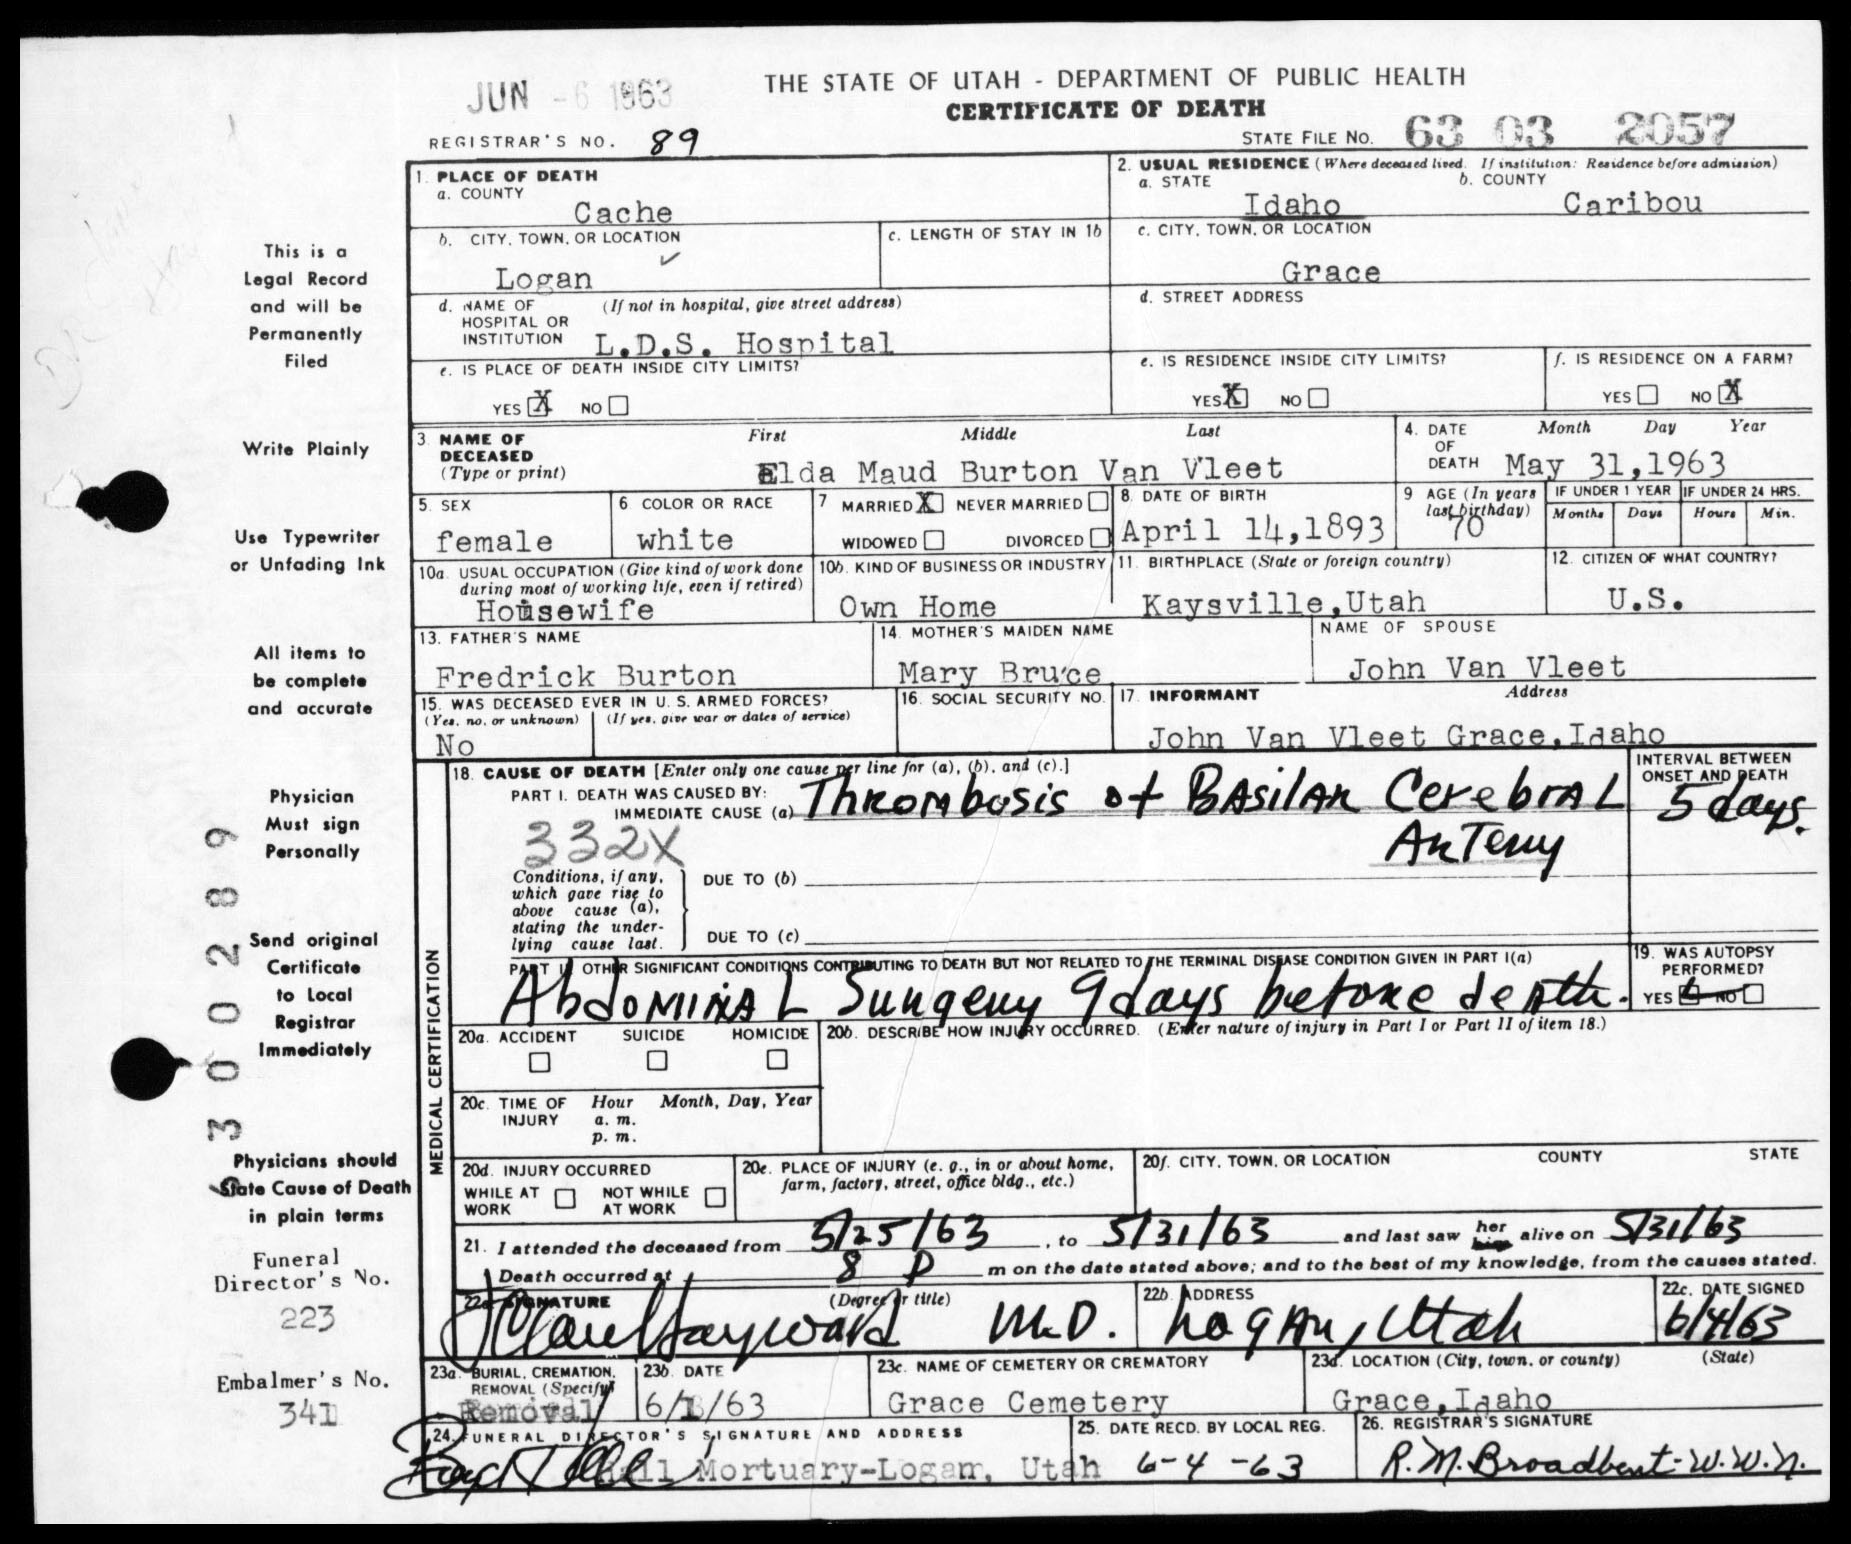 JUN - 6 1963
THE STATE OF UTAH - DEPARTMENT OF PUBLIC HEALTH
CERTIFICATE OF DEATH
REGISTRAR'S NO. 89
STATE FILE NO. 63 03 2057
This is a
Legal Record
and will be
Permanently
Filed
Write Plainly
Use Typewriter
or Unfading Ink
All items to
be complete
and accurate
Physician
Must sign
Personally
Send original
Certificate
to Local
Registrar
Immediately
Physicians should
State Cause of Death
in plain terms
Funeral
Director's No.
223
Embalmer's No.
341
300289
1. PLACE OF DEATH
a. COUNTY
Cache
2. USUAL RESIDENCE (Where deceased lived. If institution: Residence before admission)
a. STATE b. COUNTY
Idaho Caribou
b. CITY, TOWN, OR LOCATION
Logan
c. LENGTH OF STAY IN 1b
c. CITY, TOWN, OR LOCATION
Grace
d. NAME OF (If not in hospital, give street address)
HOSPITAL OR
INSTITUTION L.D.S. Hospital
d. STREET ADDRESS
e. IS PLACE OF DEATH INSIDE CITY LIMITS?
YES X NO
e. IS RESIDENCE INSIDE CITY LIMITS?
YES X NO
f. IS RESIDENCE ON A FARM?
YES NO X
3. NAME OF DECEASED (Type or print)
First Middle Last
Elda Maud Burton Van Vleet
4. DATE OF DEATH Month Day Year
May 31,1963
5. SEX
female
6 COLOR OR RACE
white
7 MARRIED X NEVER MARRIED
WIDOWED DIVORCED
8. DATE OF BIRTH
April 14,1893
9 AGE (In years last birthday)
70
IF UNDER 1 YEAR IF UNDER 24 HRS.
Months Days Hours Min.
10a. USUAL OCCUPATION (Give kind of work done during most of working life, even if retired)
Housewife
10b. KIND OF BUSINESS OR INDUSTRY
Own Home
11. BIRTHPLACE (State or foreign country)
Kaysville,Utah
12. CITIZEN OF WHAT COUNTRY?
U.S.
13. FATHER'S NAME
Fredrick Burton
14. MOTHER'S MAIDEN NAME
Mary Bruce
NAME OF SPOUSE
John Van Vleet
15. WAS DECEASED EVER IN U. S. ARMED FORCES?
(Yes, no, or unknown) (If yes, give war or dates of service)
No
16. SOCIAL SECURITY NO.
17. INFORMANT Address
John Van Vleet Grace,Idaho
MEDICAL CERTIFICATION
18. CAUSE OF DEATH [Enter only one cause per line for (a), (b), and (c).]
PART I. DEATH WAS CAUSED BY:
IMMEDIATE CAUSE (a) Thrombosis of Basilar Cerebral
Artery
332X
INTERVAL BETWEEN
ONSET AND DEATH
5 days.
Conditions, if any,
which gave rise to
above cause (a),
stating the under-
lying cause last.
DUE TO (b)
DUE TO (c)
PART II. OTHER SIGNIFICANT CONDITIONS CONTRIBUTING TO DEATH BUT NOT RELATED TO THE TERMINAL DISEASE CONDITION GIVEN IN PART I(a)
Abdominal Surgery 9 days before death.
19. WAS AUTOPSY
PERFORMED?
YES NO
20a. ACCIDENT SUICIDE HOMICIDE
20b. DESCRIBE HOW INJURY OCCURRED. (Enter nature of injury in Part I or Part II of item 18.)
20c. TIME OF INJURY Hour Month, Day, Year
a. m.
p. m.
20d. INJURY OCCURRED
WHILE AT WORK NOT WHILE AT WORK
20e. PLACE OF INJURY (e. g., in or about home, farm, factory, street, office bldg., etc.)
20f. CITY, TOWN, OR LOCATION COUNTY STATE
21. I attended the deceased from 5/25/63, to 5/31/63 and last saw her him alive on 5/31/63
Death occurred at 8 P m on the date stated above; and to the best of my knowledge, from the causes stated.
22a. SIGNATURE (Degree or title)
Hayward M.D.
22b. ADDRESS
Logan, Utah
22c. DATE SIGNED
6/4/63
23a. BURIAL, CREMATION, REMOVAL (Specify)
Removal
23b. DATE
6/1/63
23c. NAME OF CEMETERY OR CREMATORY
Grace Cemetery
23d. LOCATION (City, town, or county) (State)
Grace,Idaho
24. FUNERAL DIRECTOR'S SIGNATURE AND ADDRESS
Hall Mortuary-Logan, Utah
25. DATE RECD. BY LOCAL REG.
6-4-63
26. REGISTRAR'S SIGNATURE
R.M. Broadbent-W.W.N.